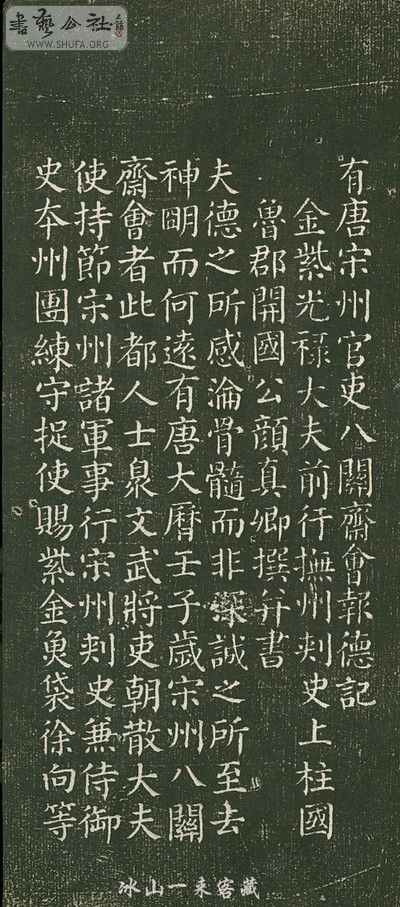 書藝公社
WWW.SHUFA.ORG
有唐宋州官吏八關齋會報德記
金紫光祿大夫前行撫州刾史上柱國
魯郡開國公顔真卿撰并書
夫德之所感淪骨髓而非深誠之所至去
神眀而何遠有唐大曆壬子歳宋州八關
齋會者此都人士衆文武將吏朝散大夫
使持節宋州諸軍事行宋州刾史兼侍御
史夲州團練守捉使賜紫金魚袋徐向等
冰山一来客藏